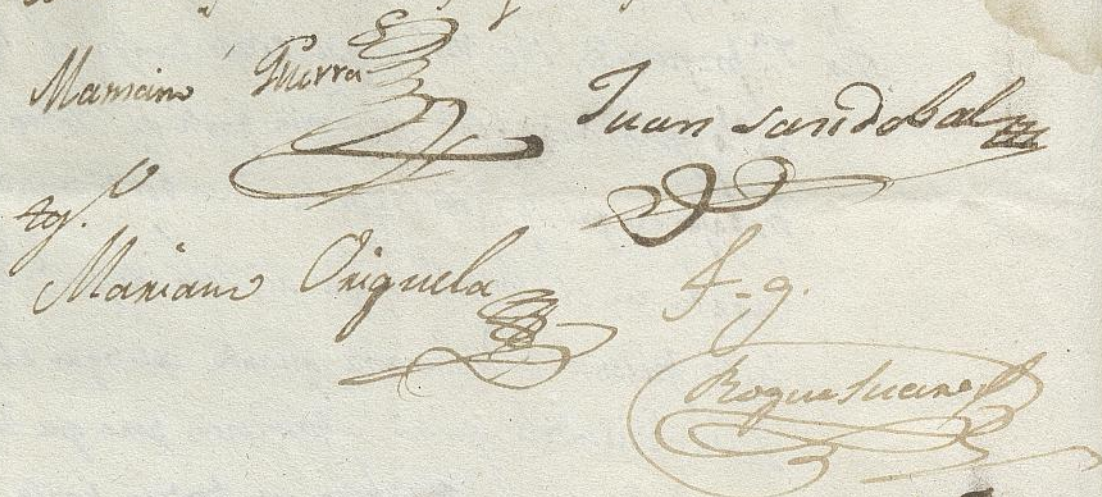 Mariano Guerra
Juan sandobal
tg.º
Mariano Origuela
t-g.
Roque Juarez